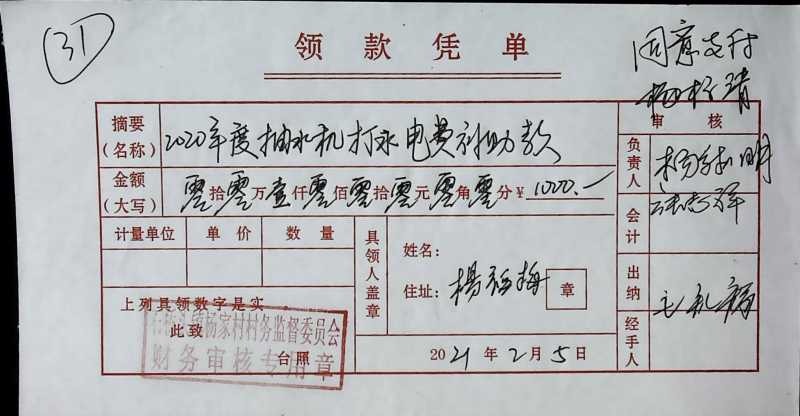 31
领款凭单
同意支付
审核
摘要
(名称)
2020年度抽水机打水电费补助款
负责人
金额
(大写)
零拾零万壹仟零佰零拾零元零角零分¥ 1000.—
会计
计量单位 单价 数量
具领人盖章
姓名:
住址: 杨
章
出纳
上列具领数字是实
此致
台照
杨家村村务监督委员会
财务审核专用章
2021年2月5日
经手人